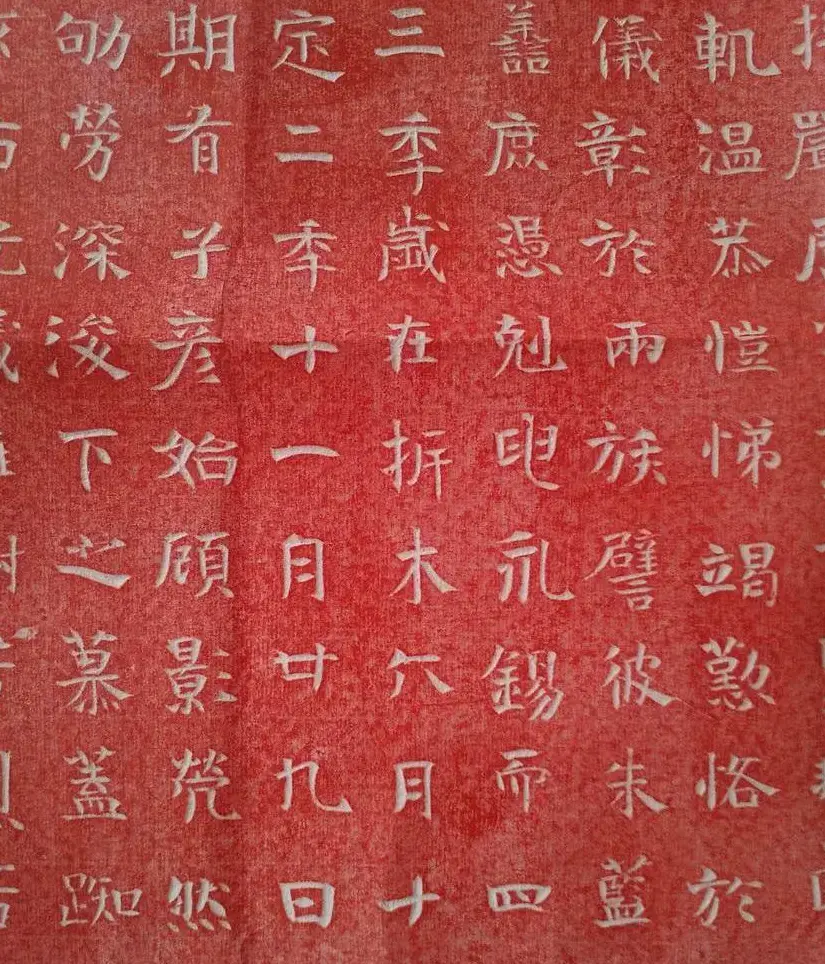 軌温恭愷悌竭懃恪於
儀彰於兩族譬彼朱藍
譱庶憑剋臮永錫而四
三秊歲在析木六月十
定二秊十一月廿九日
期有子彦始顧影煢然
劬勞深浚下之慕蓋踟